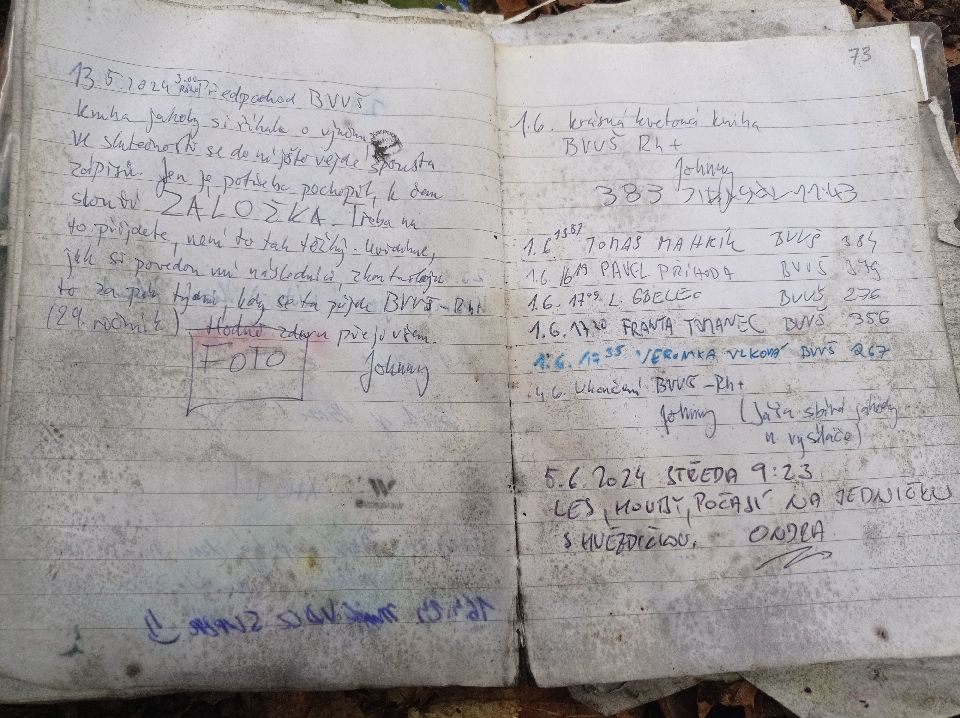 13.5.2024 3.00 Předpochod BVVŠ
Kniha jakoby si říkala o výměnu
Ve skutečnosti se do ní ještě vejde spousta
zápisů. Jen je potřeba pochopit, k čem
slouží ZÁLOŽKA. Třeba na
to přijdete, není to tak těžký. Uvidíme,
jak si povedou mí následníci, zkontroluju
to za pár týdnů, kdy se tu půjde BVVŠ-Rh+
(29. ročník) Hodně zdaru přeju všem.
FOTO
Johnny
73
1.6. krásná kvetoucí kniha
BVVŠ Rh+
Johnny
383
1.6 1357 TOMÁŠ MAHRÍK BVVŠ 384
1.6. PAVEL PŘÍHODA BVVŠ 379
1.6. L. GBELEC BVVŠ 276
1.6. 1720 FRANTA TOMANEC BVVŠ 356
1.6. 1735 VERONIKA VLKOVÁ BVVŠ 267
4.6. Ukončení BVVŠ-Rh+
Johnny (Jáťa sbírá jahody
u vysílače)
5.6.2024 STŘEDA 9:23
LES, HOUBY, POČASÍ NA JEDNIČKU
S HVĚZDIČKOU. ONDRA